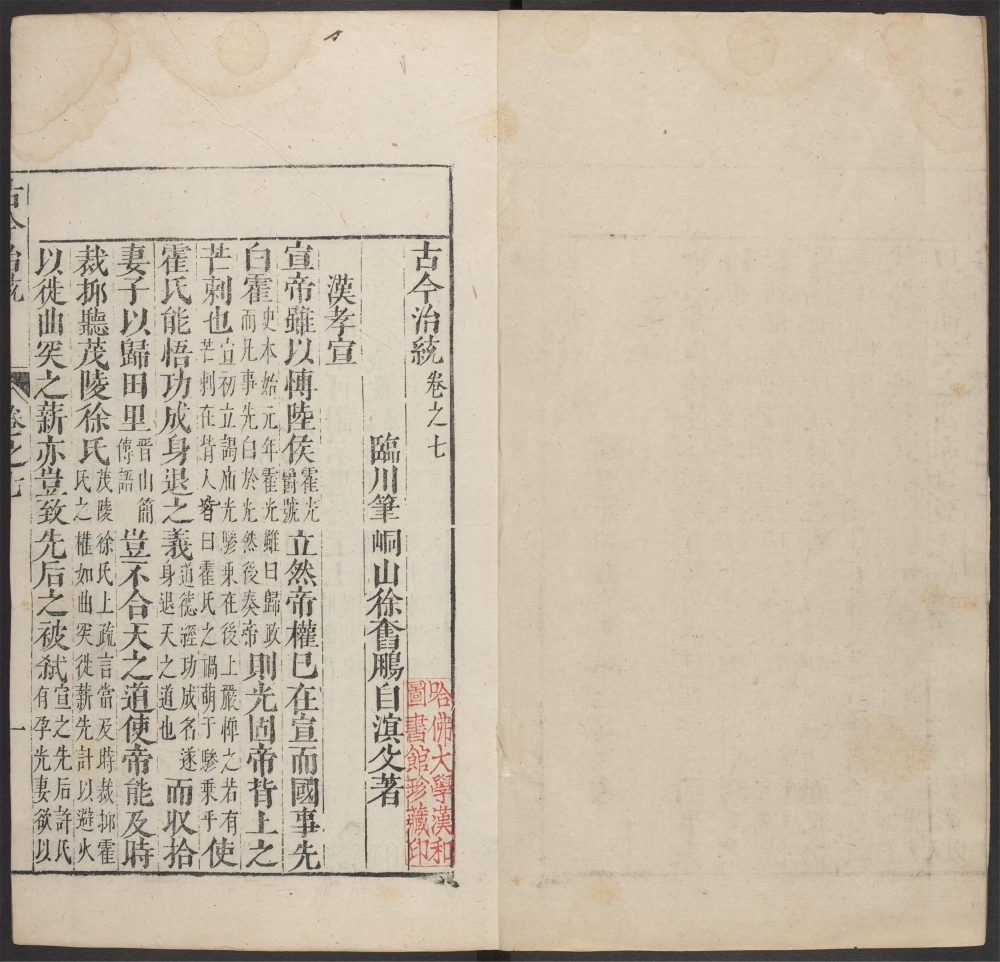 古今治統 卷之七
臨川筆峒山徐奮鵬自溟父著
漢孝宣
宣帝雖以博陸侯霍光爵號立然帝權已在宣而國事先
白霍史本始元年霍光雖曰歸政而凡事先白於光然後奏帝則光固帝背上之
芒刺也宣初立謁廟光驂乘在後上嚴憚之若有芒刺在背人皆曰霍氏之禍萌于驂乘乎使
霍氏能悟功成身退之義道德經功成名遂身退天之道也而収拾
妻子以歸田里晋山簡傳語豈不合天之道使帝能及時
裁抑聽茂陵徐氏茂陵徐氏上疏言當及時裁抑霍氏之權如曲突徙薪先計以避火
以徙曲突之薪亦豈致先后之被弑宣之先后許氏有孕光妻欲以
古今治統
卷之七
一
哈佛大學漢和
圖書館珍藏印